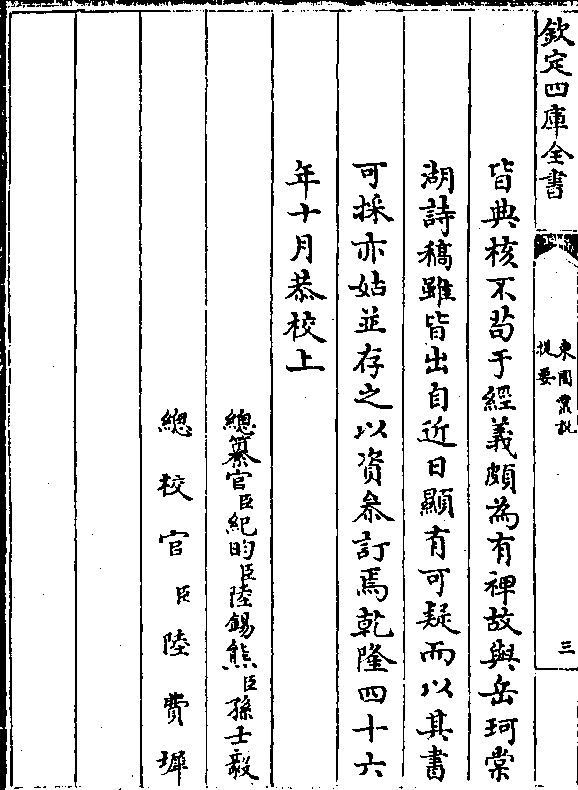 欽定四庫全書
東園叢說
提要
三
皆典核不苟于經義頗為有裨故與岳珂棠
湖詩稿雖皆出自近日顯有可疑而以其書
可採亦姑並存之以資叅訂焉乾隆四十六
年十月恭校上
總纂官臣紀昀臣陸錫熊臣孫士毅
總校官臣陸費墀